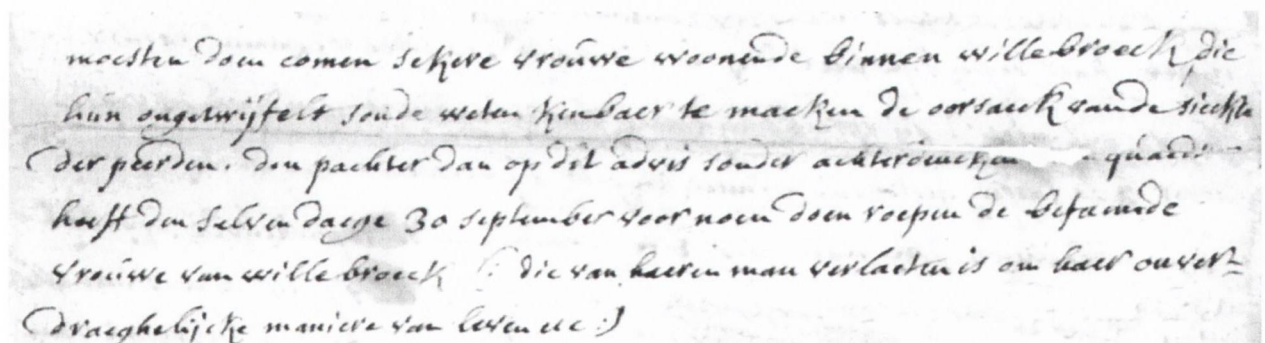 moesten doen comen sekere vrouwe woonende binnen willebroeck, die
hun ongetwijfelt soude weten kenbaer te maeken de oorsaeck vande sieckte
der peerden. den pachter dan op dit advis sonder achterdencken quaed
heeft den selven daege 30 september voor noen doen roepen de befaemde
vrouwe van willebroeck (: die van haeren man verlaeten is om haer onver-
draeghelijcke maniere van leven etc:)